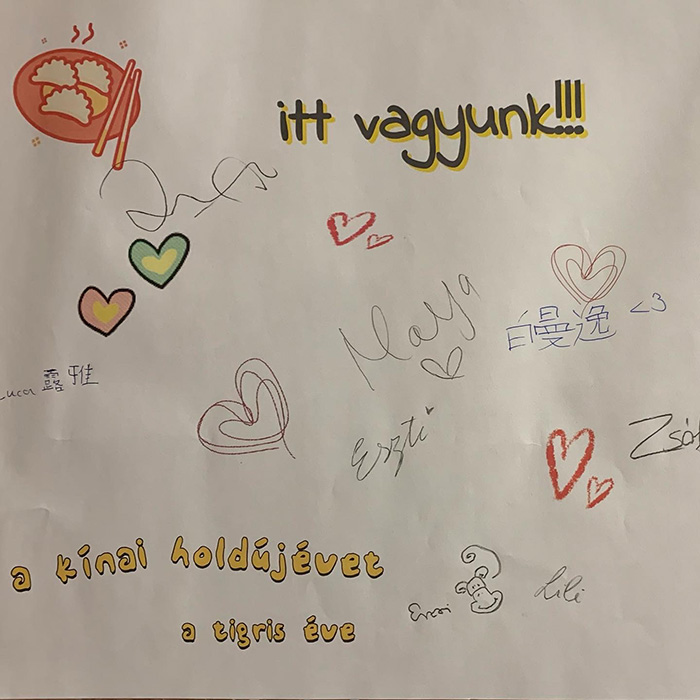 itt vagyunk!!!
Maya
白曼逸 <3
Luca 露雅
Eszti
a kínai holdújévet
a tigris éve
Lili